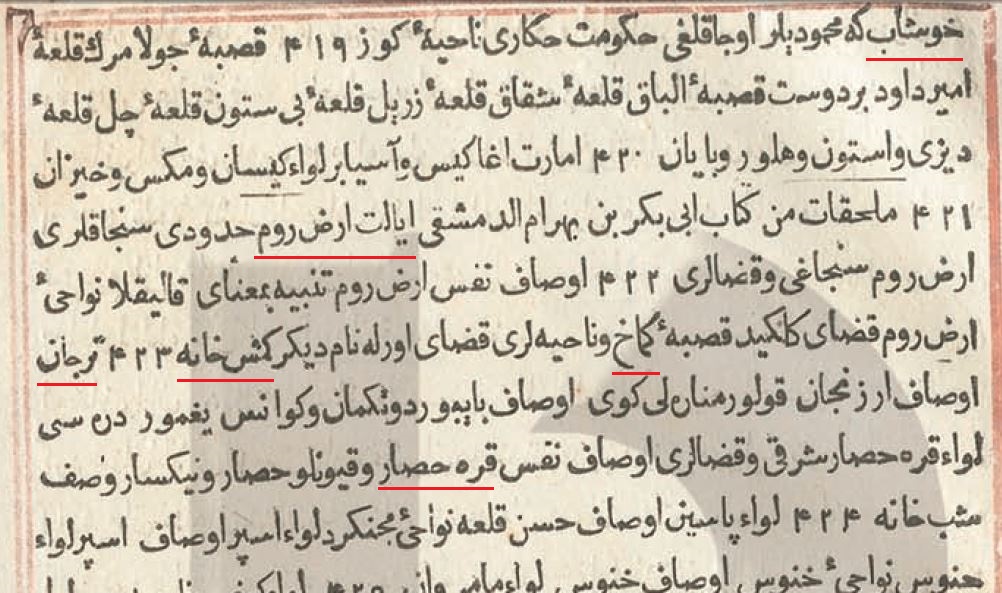 خوشاب که محمودیلر اوجاقلغی حکومت حکاری ناحیهٔ کو ز ٤١٩ قصبهٔ جولا مرك قلعهٔ
امیر داود بردوست قصبهٔ الباق قلعهٔ شقاق قلعهٔ زریل قلعهٔ بی ستون قلعهٔ چل قلعهٔ
دیزی واستون وهلور وبایان ٤٢٠ امارت اغاکیس وآسیابر لواء کیسان ومکس وخیزان
٤٢١ ملحقات من کتاب ابی بکر بن بهرام الدمشقی ایالت ارض روم حدودی سنجاقلری
ارض روم سنجاغی وقضالری ٤٢٢ اوصاف نفس ارض روم تنبیه بمعنای قالیقلا نواحیٔ
ارض روم قضای کلکید قصبهٔ کماخ وناحیه لری قضای اورله نام دیکر کمش خانه ٤٢٣ ترجان
اوصاف ارزنجان قولور منازلی کوی اوصاف بایبورد وتکمان وکوانس یغمور دره سی
لواء قره حصار شرقی وقضالری اوصاف نفس قره حصار وقیونلو حصار ونیکسار وصف
شب خانه ٤٢٤ لواء پاسین اوصاف حسن قلعه نواحیٔ مجنکرد لواء اسپر اوصاف اسپر لواء
خنوس نواحیٔ خنوس اوصاف خنوس لواء مامروان ٤٢٥